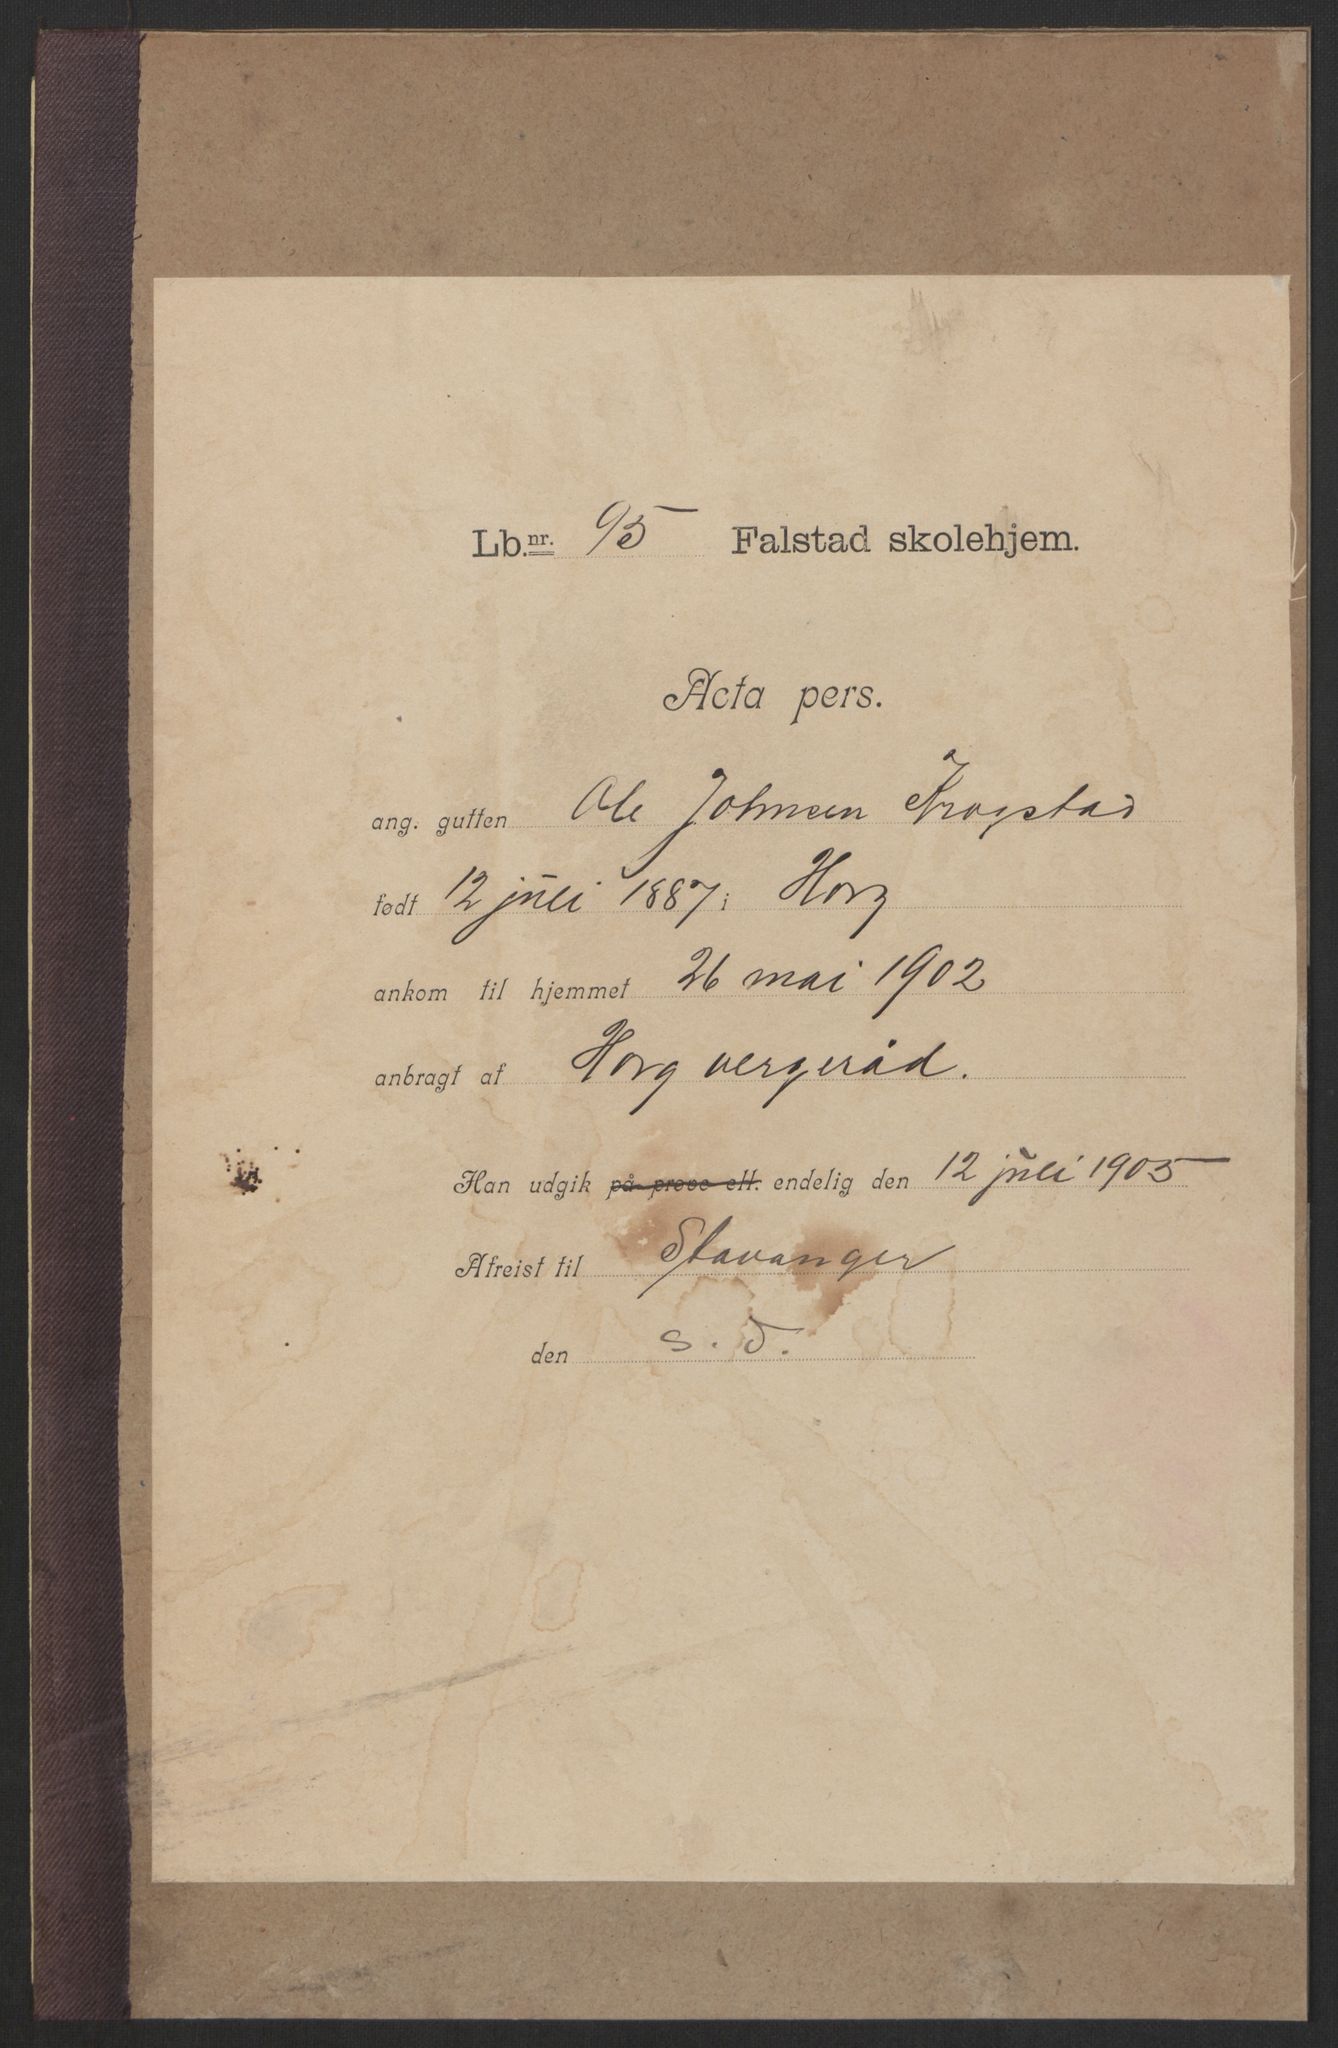 Lb.nr. 95 Falstad skolehjem.
Acta pers.
ang. gutten Ole Johnsen Krogstad
født 12 juli 1887 i Horg
ankom til hjemmet 26 mai 1902
anbragt af Horg vergeråd.
Han udgik på prøve ell. endelig den 12 juli 1905
Afreist til Stavanger
den s. d.